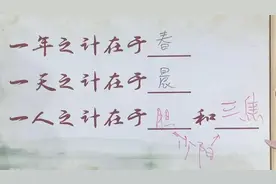 一年之计在于春
一天之计在于晨
一人之计在于胆和三焦